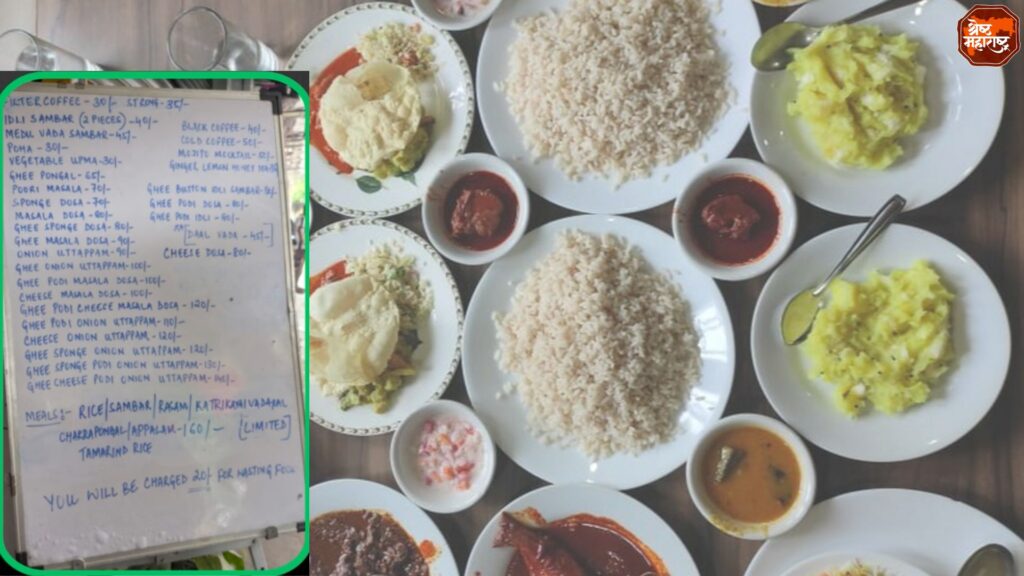 FILTER COFFEE - 30/- STRONG - 35/-
IDLI SAMBAR (2 PIECES) - 40/-
BLACK COFFEE - 40/-
MEDU VADA SAMBAR - 45/-
COLD COFFEE - 50/-
POHA - 30/-
MOJITO MOCKTAIL
VEGETABLE UPMA - 30/-
GINGER LEMON HONEY
GHEE PONGAL - 65/-
POORI MASALA - 70/-
GHEE BUTTON IDLI SAMBAR
SPONGE DOSA - 70/-
GHEE PODI DOSA - 80/-
MASALA DOSA - 80/-
GHEE PODI IDLI - 80/-
GHEE SPONGE DOSA - 80/-
[DAAL VADA - 45/-]
GHEE MASALA DOSA - 90/-
CHEESE DOSA - 80/-
ONION UTTAPPAM - 90/-
GHEE ONION UTTAPPAM - 100/-
GHEE PODI MASALA DOSA - 100/-
CHEESE MASALA DOSA - 100/-
GHEE PODI CHEESE MASALA DOSA - 120/-
GHEE PODI ONION UTTAPPAM - 110/-
CHEESE ONION UTTAPPAM - 120/-
GHEE SPONGE ONION UTTAPPAM - 120/-
GHEE SPONGE PODI ONION UTTAPPAM - 130/-
GHEE CHEESE PODI ONION UTTAPPAM
MEALS:- RICE/SAMBAR/RASAM/KATRIKKAI VADAKAL
CHAKRAPONGAL/APPALAM - 160/- [LIMITED]
TAMARIND RICE
YOU WILL BE CHARGED 20/- FOR WASTING FOOD
श्रेष्ठ
महाराष्ट्र